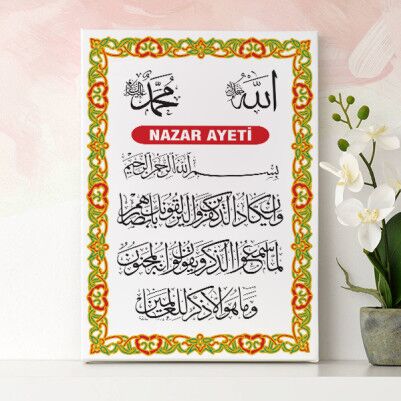 الله محمد
NAZAR AYETİ
بسم الله الرحمن الرحيم
وان يكاد الذين كفروا ليزلقونك بابصارهم
لما سمعوا الذكر ويقولون انه لمجنون
وما هو الا ذكر للعالمين